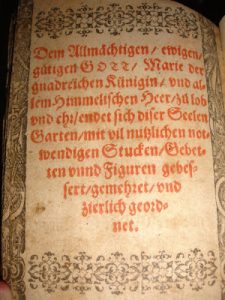 Dem Allmächtigen / ewigen /
gütigen GOTT / Marie der
gnadreichen Künigin / vnd al
lem Himmelischen Heer / zů lob
vnd ehr / endet sich diser Seelen
Garten / mit vil nutzlichen not
wendigen Stucken / Gebet-
ten vnnd Figuren gebes-
sert / gemehret / vnd
zierlich geord-
net.